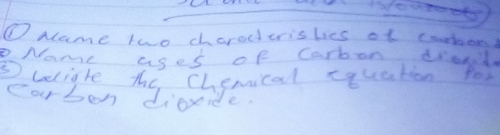 ① Name two characteristics of carbon
② Name uses of carbon dioxide
③ Weigte the Chemical equation for
Carbon dioxide.